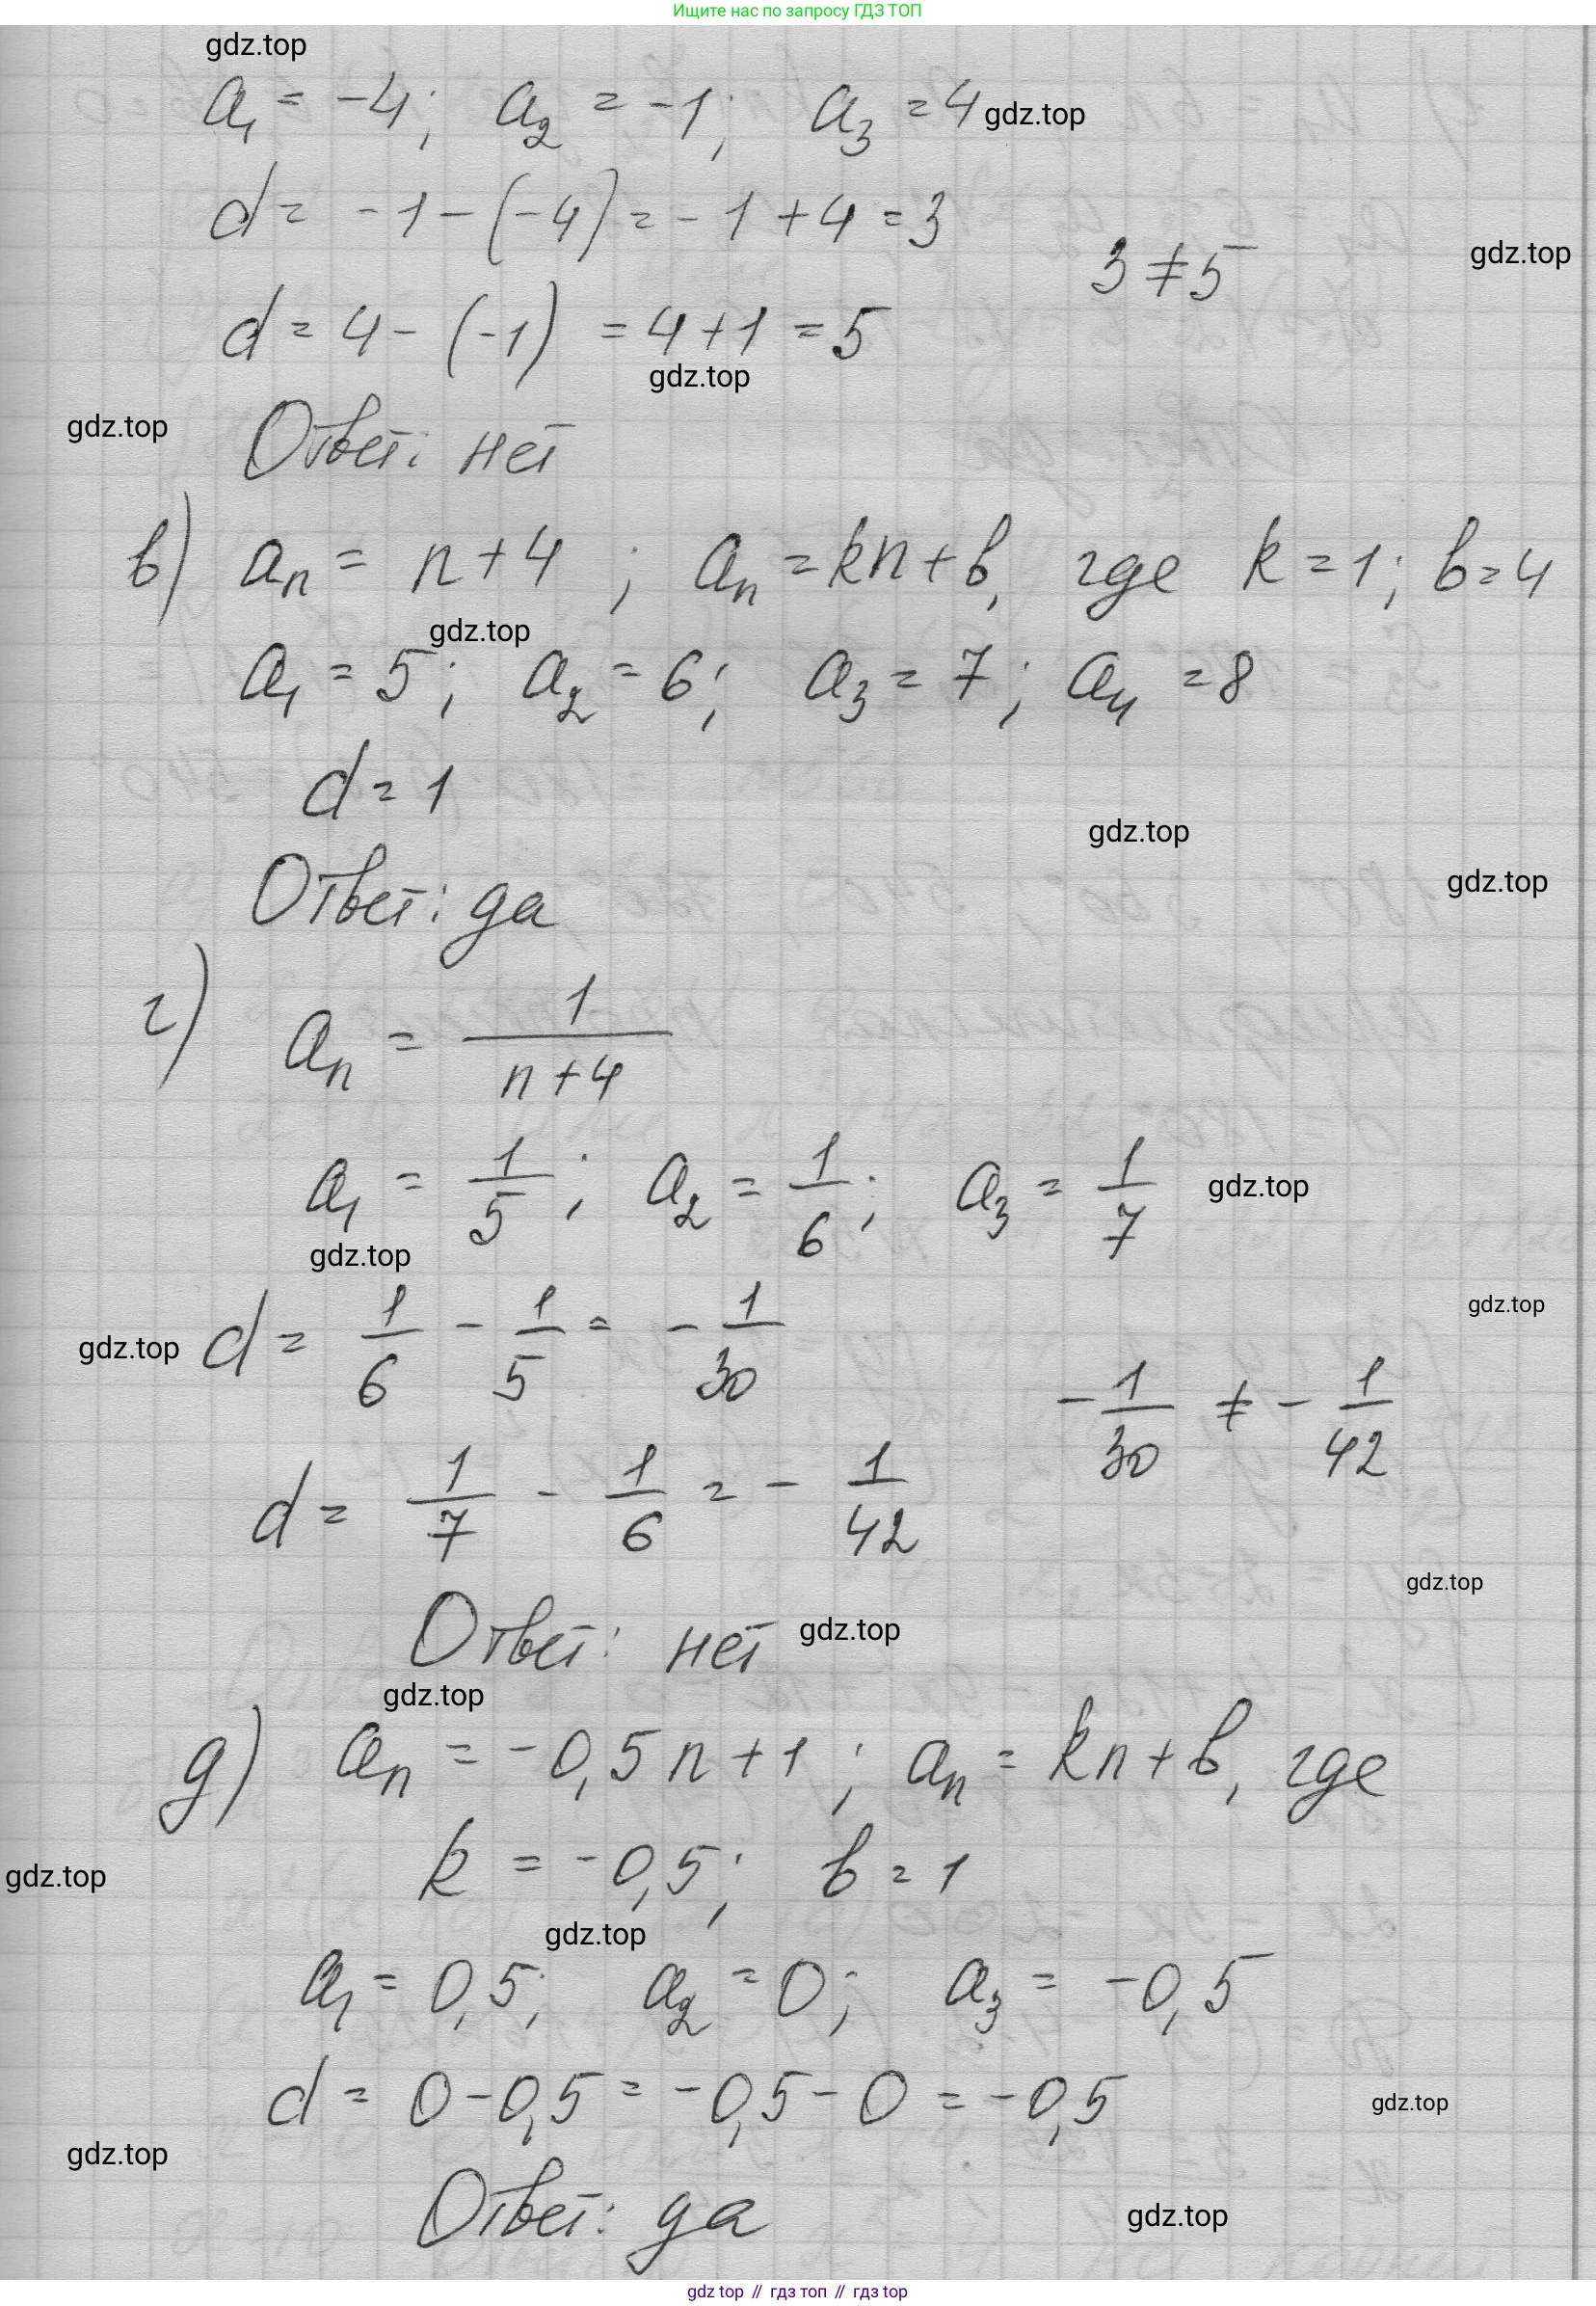 Ищите нас по запросу ГДЗ ТОП
gdz.top
a₁ = -4; a₂ = -1; a₃ = 4 gdz.top
d = -1 - (-4) = -1 + 4 = 3
3 ≠ 5 gdz.top
d = 4 - (-1) = 4 + 1 = 5
gdz.top
gdz.top
Ответ: нет
в) aₙ = n + 4 ; aₙ = kn + b, где k = 1; b = 4
gdz.top
a₁ = 5; a₂ = 6; a₃ = 7; a₄ = 8
d = 1
gdz.top
gdz.top
Ответ: да
г) aₙ = 1/(n+4)
a₁ = 1/5; a₂ = 1/6; a₃ = 1/7 gdz.top
gdz.top
gdz.top
gdz.top d = 1/6 - 1/5 = -1/30
-1/30 ≠ -1/42
d = 1/7 - 1/6 = -1/42
gdz.top
Ответ: нет gdz.top
gdz.top
д) aₙ = -0,5n + 1 ; aₙ = kn + b, где
k = -0,5; b = 1
gdz.top
gdz.top
a₁ = 0,5; a₂ = 0; a₃ = -0,5
d = 0 - 0,5 = -0,5 - 0 = -0,5
gdz.top
gdz.top
Ответ: да
gdz.top
gdz top // гдз топ // гдз top